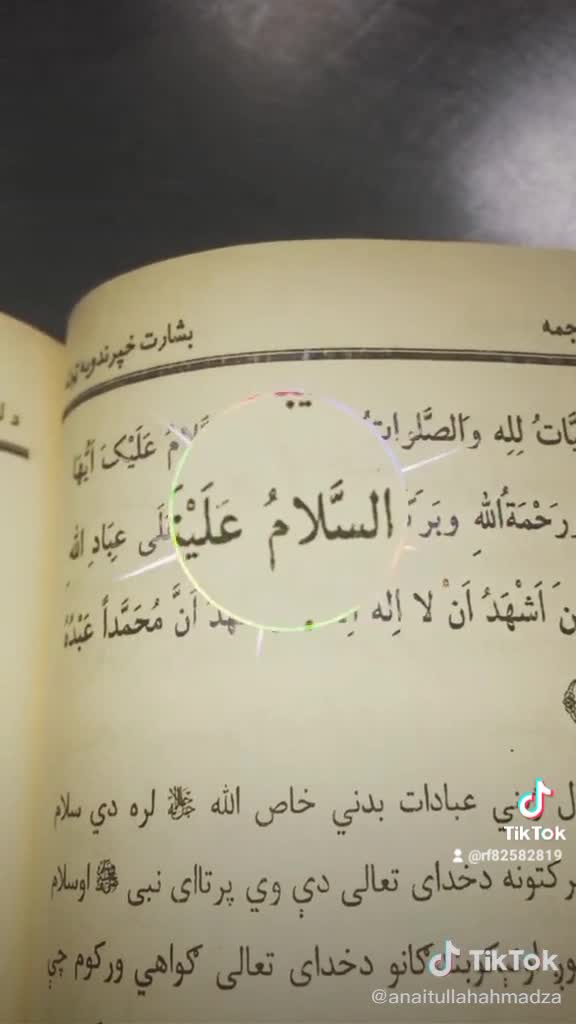 جمه بشارت خپرندویه
يَّاتُ لِلهِ وَالصَّلَوَاتُ عَلَيْکَ اَيُّهَا
السَّلامُ عَلَيْنَ
رَحْمَةُاللهِ وبَرَكَ عَلَى عِبَادِ اللهِ
نَ اَشْهَدُ اَنْ لا اِله هَدُ اَنَّ مُحَمَّداً عَبْدُهُ
عبادات بدني خاص الله ﷻ لره دي سلام
رکتونه دخدای تعالی دې وي پرتاای نبی ﷺ اوسلام
ګانو دخدای تعالی ګواهي ورکوم چې
TikTok
@rf82582819
TikTok
@anaitullahahmadza